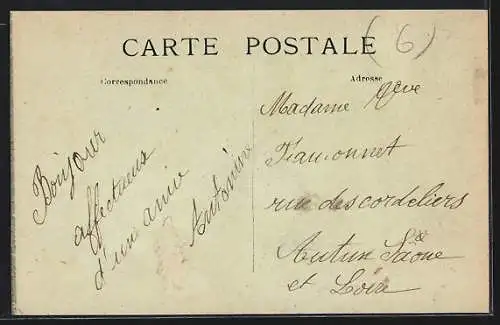 (6)
CARTE POSTALE
Correspondance
Adresse
Bonjour
affectueux
d'un amie
Antonine
Madame Veve
rue des cordeliers
Autun Saône
et Loire